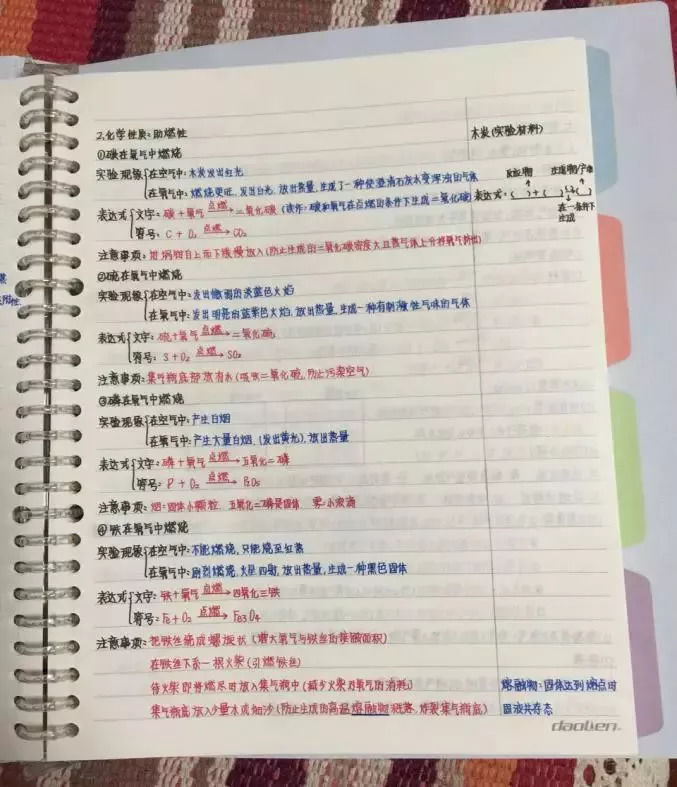 2.化学性质:助燃性
木炭(实验材料)
①碳在氧气中燃烧
实验现象 在空气中:木炭发出红光
在氧气中:燃烧更旺,发出白光,放出热量,生成了一种使澄清石灰水变浑浊的气体
反应物 生成物/产物
表达式:( )+( )→( )
在一定条件下
生成
表达式 文字:碳+氧气 点燃→ 二氧化碳(读作:碳和氧气在点燃的条件下生成二氧化碳)
符号:C+O₂ 点燃→ CO₂
注意事项:坩埚钳自上而下缓慢放入(防止生成的二氧化碳密度大且热气体上升将氧气挤出)
②硫在氧气中燃烧
实验现象 在空气中:发出微弱的淡蓝色火焰
在氧气中:发出明亮的蓝紫色火焰,放出热量,生成一种有刺激性气味的气体
表达式 文字:硫+氧气 点燃→ 二氧化硫
符号:S+O₂ 点燃→ SO₂
注意事项:集气瓶底部放有水(吸收二氧化硫,防止污染空气)
③磷在氧气中燃烧
实验现象 在空气中:产生白烟
在氧气中:产生大量白烟,(发出黄光),放出热量
表达式 文字:磷+氧气 点燃→ 五氧化二磷
符号:P+O₂ 点燃→ P₂O₅
注意事项:烟:固体小颗粒 五氧化二磷是固体 雾:小液滴
④铁在氧气中燃烧
实验现象 在空气中:不能燃烧,只能烧至红热
在氧气中:剧烈燃烧,火星四射,放出热量,生成一种黑色固体
表达式 文字:铁+氧气 点燃→ 四氧化三铁
符号:Fe+O₂ 点燃→ Fe₃O₄
注意事项:把铁丝绕成螺旋状(增大氧气与铁丝的接触面积)
在铁丝下系一根火柴(引燃铁丝)
待火柴即将燃尽时放入集气瓶中(减少火柴对氧气的消耗)
集气瓶底放入少量水或细沙(防止生成的高温熔融物溅落,炸裂集气瓶底)
熔融物:固体达到熔点时
固液共存态
daolien